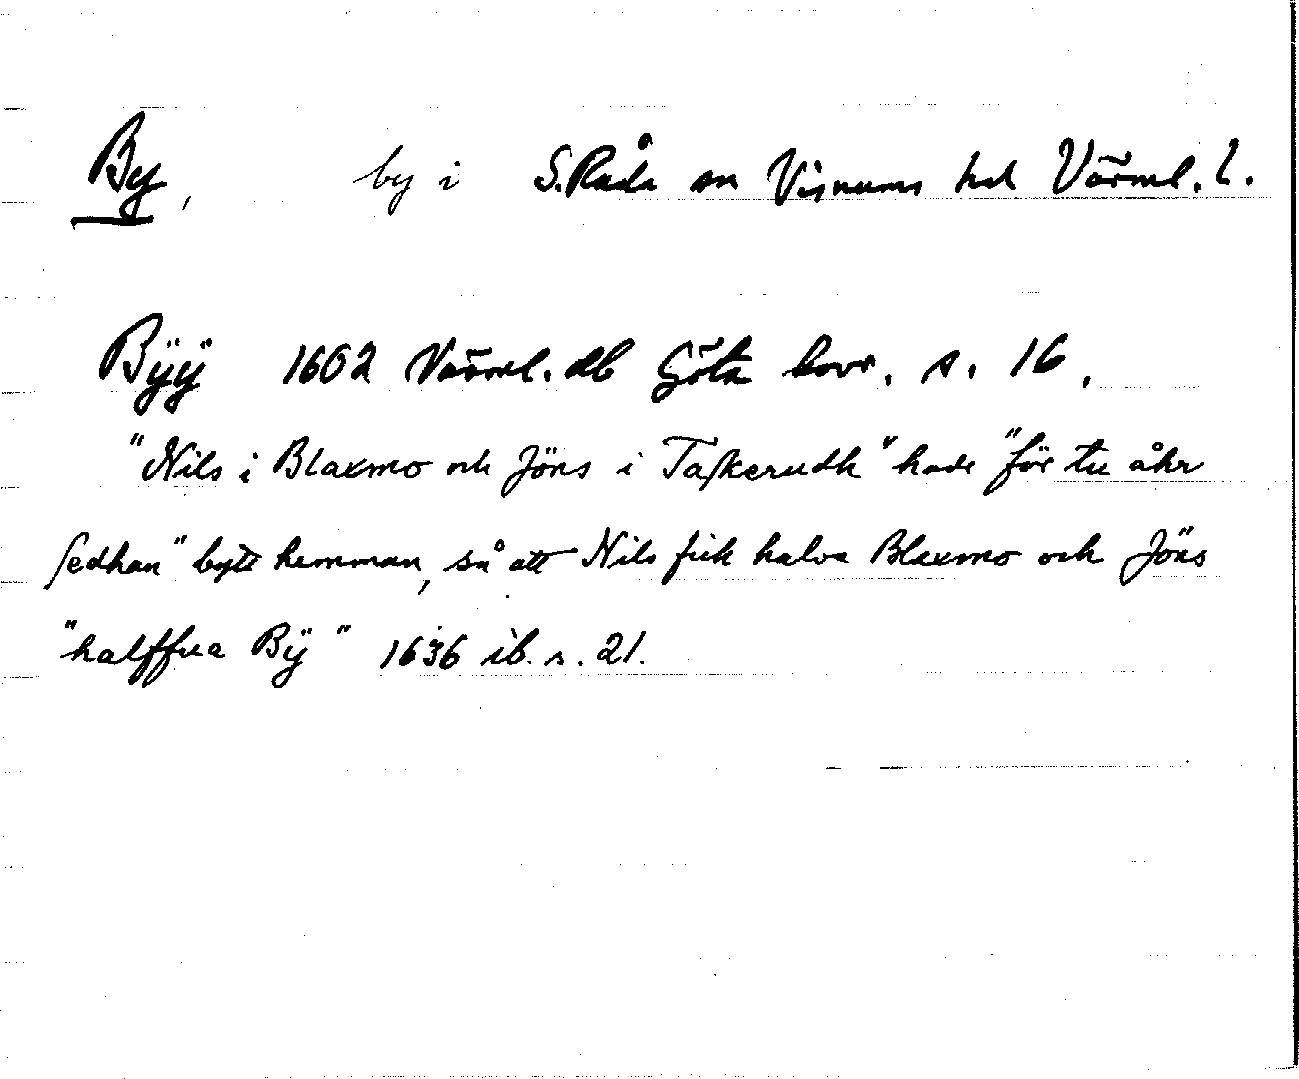 By, by i S. Råda sn Visnums hd Värml. l.
Bÿÿ 1602 Värml. db Göta hovr. s. 16.
"Nils i Blaxmo och Jöns i Taskerudh" hade "för tu åhr
sedhan" bytt hemman, så att Nils fick halva Blaxmo och Jöns
"halffua Bÿ" 1636 ib. s. 21.